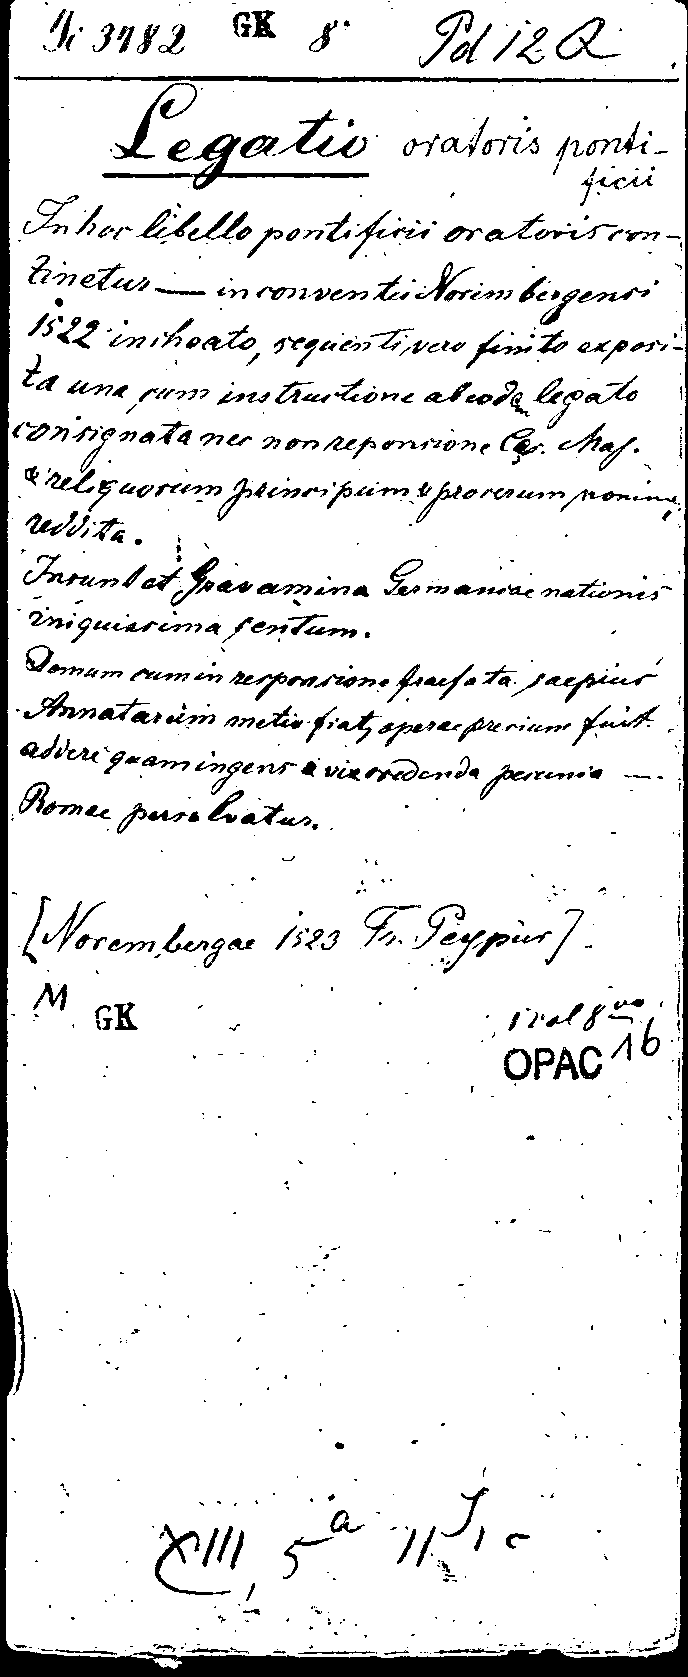 Yi 3782 GK 8° Pd 12 Q
Legatio oratoris ponti-
ficii
In hoc libello pontificii oratoris con-
tinetur — in conventu Norimbergensi
1522 inchoato, sequenti vero finito exposi-
ta una cum instructione ab eodem legato
consignata nec non reponsione Caes. Maj.
& reliquorum principum & procerum nomine
reddita.
Insunt et Gravamina Germanicae nationis
iniquissima centum.
Demum cum in responsione praefata saepius
Annatarum metio fiat, operae precium fuit
addere quam ingens & vix credenda pecunia —
Romae persolvatur.
[Norembergae 1523 Fr. Peypus]
M GK
1 vol 8vo.
OPAC 16
XIII, 5 a